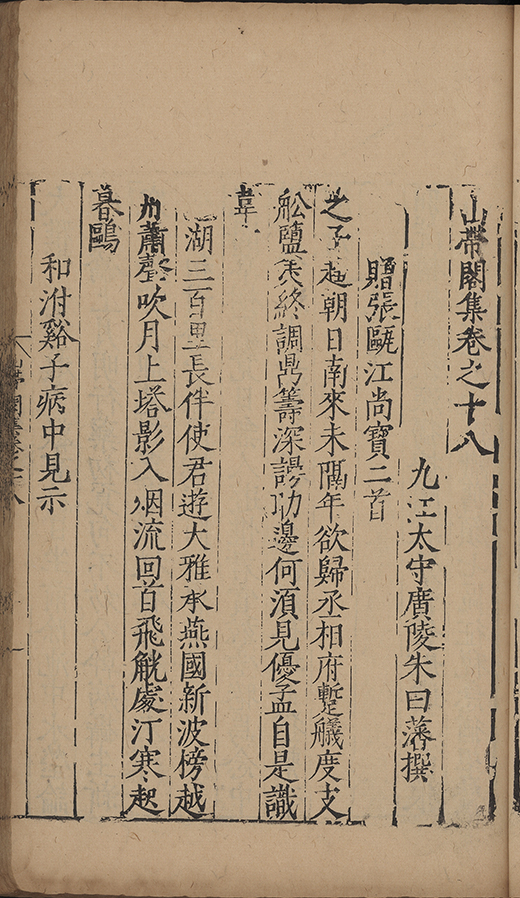 山帶閣集卷之十八
九江太守廣陵朱曰藩撰
贈張甌江尚寶二首
之子趨朝日南來未隔年欲歸丞相府暫艤度支
舩鹽羙終調鼎籌深謾功邊何湏見優孟自是識
韋
湖三百里長伴使君遊大雅承燕國新波榜越
州蕭聲吹月上塔影入烟流回首飛觥處汀寒起
暮鷗
和汫谿子病中見示